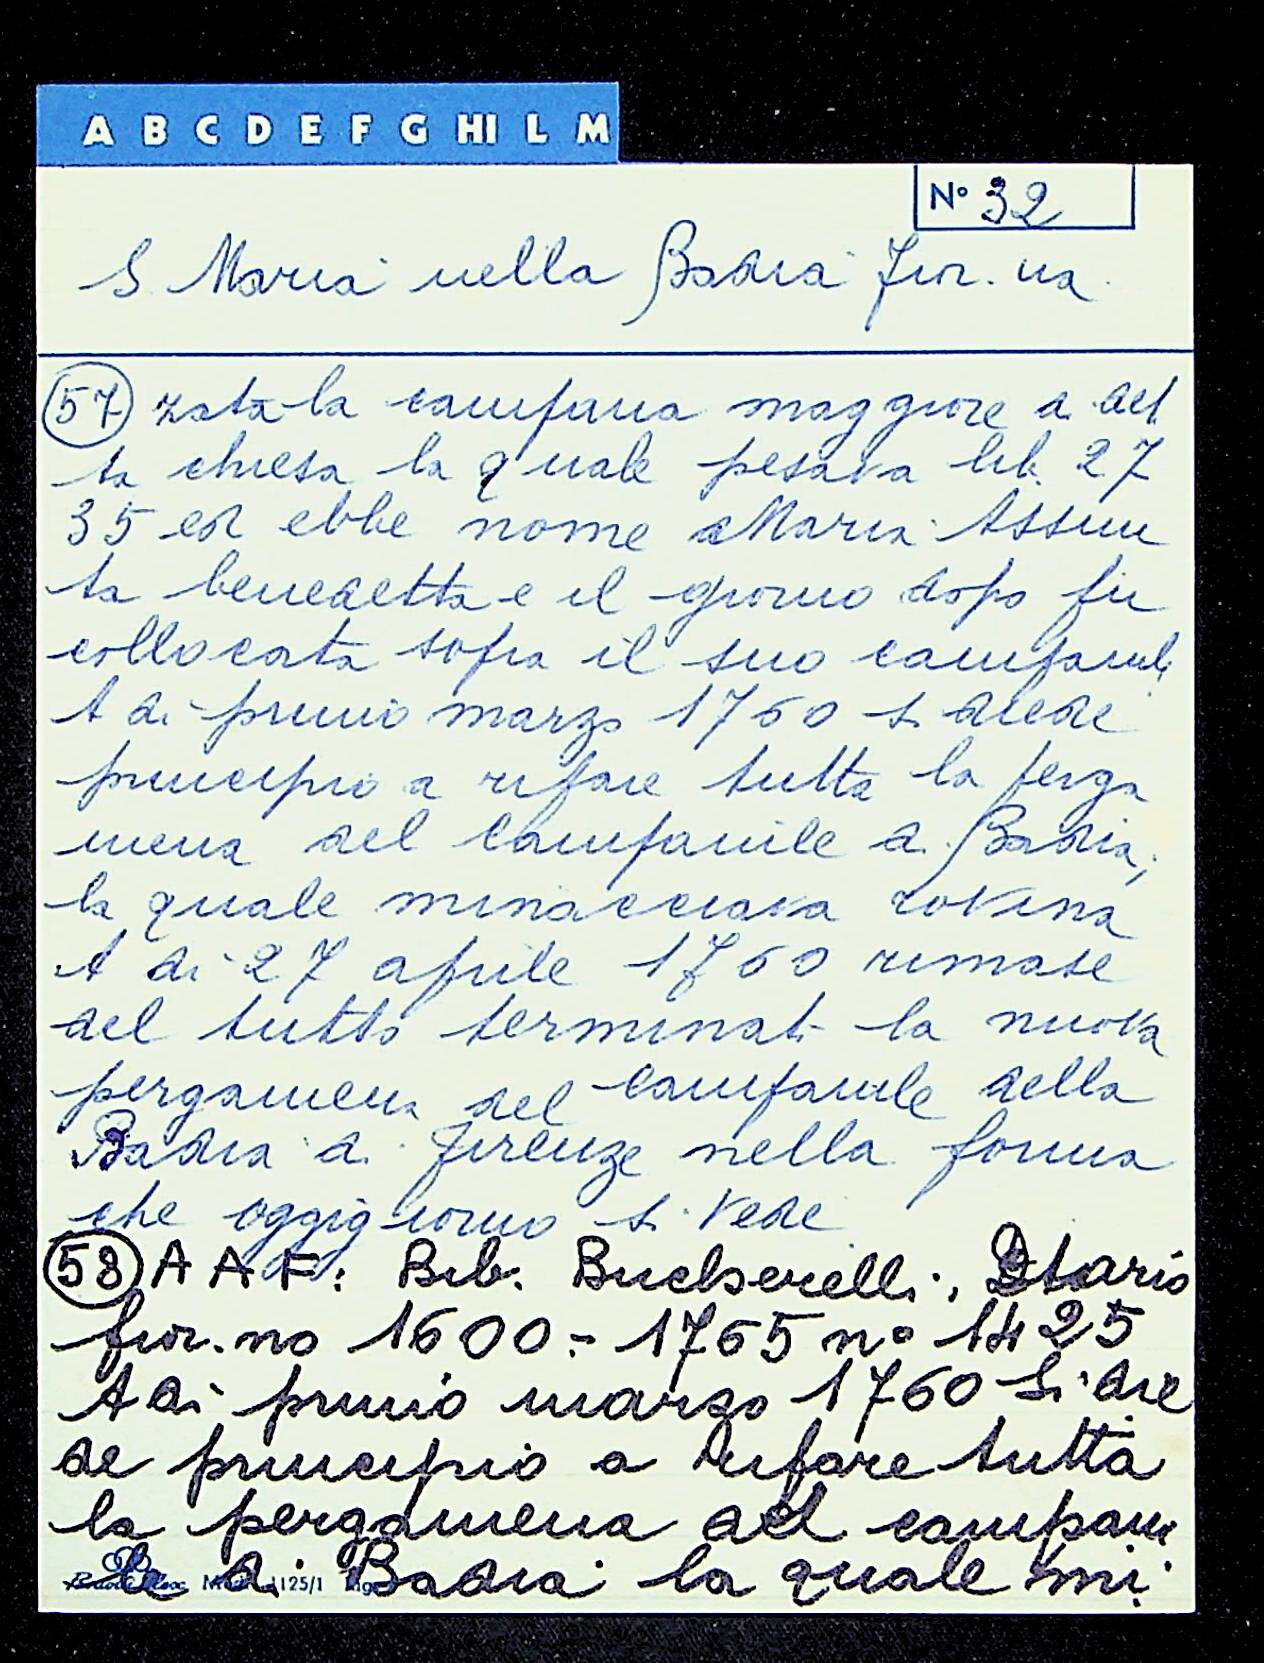 A B C D E F G HI L M
N° 32
S Maria nella Badia fior. na
57 zata la campana maggiore di det
ta chiesa la quale pesava lib. 27
35 ed ebbe nome Maria Assun
ta benedetta e il giorno dopo fu
collocata sopra il suo campanile
A di primo marzo 1760 si diede
principio a rifare tutta la perga
mena del campanile di Badia,
la quale minacciava rovina
A di 27 aprile 1760 rimase
del tutto terminata la nuova
pergamena del campanile della
Badia di Firenze nella forma
che oggigiorno si vede
58 A A F: Bib. Bucherelli, Diario
fior. no 1600 - 1765 n° 1425
A di primo marzo 1760 si die
de principio a rifare tutta
la pergamena del campani
le di Badia la quale mi
125/1